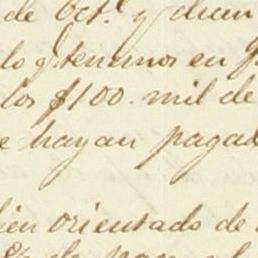 de Oct.e y dicen
lo q tenemos en
los $100. mil de
e hayan pagad
ien orientado de
de